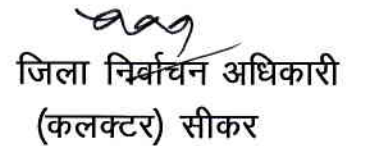 जिला निर्वाचन अधिकारी
(कलक्टर) सीकर